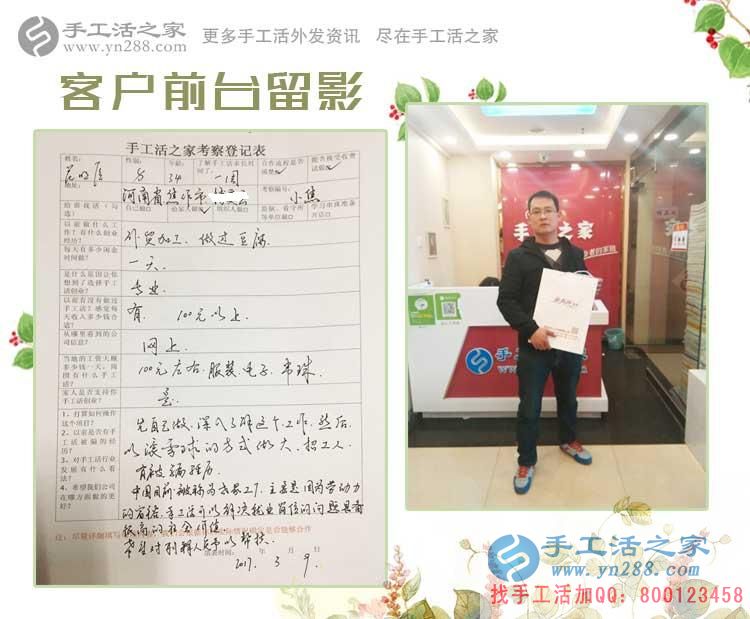 手工活之家
www.yn288.com
更多手工活外发资讯 尽在手工活之家
客户前台留影
手工活之家考察登记表
姓名:
性别:
年龄: 34
了解手工活来长时间了: 一周
合作流程是否清楚
能否接受收费试做
地址:
河南省焦作市
考察编号: 小焦
给谁找活(勾选)
自己做
给家人做
组织人做
监狱、看守所等单位做
学习串珠准备开店
以前做什么工作?有什么创业经历?
外贸加工、做过豆腐
每天有多少闲余时间做?
一天
是什么原因让你想到了选择手工活创业?
专业
以前有没有做过手工活?感觉每天收入多少钱合适?
有. 100元以上
从哪里看到的公司信息?
网上
当地的工资大概多少钱一天,周围有什么手工活?
100元左右.服装.电子.串珠
家人是否支持你手工活创业?
是
1、打算如何操作这个项目?
2、以前是否有手工活被骗的经历?
3、对手工活行业发展有什么看法?
4、希望我们公司在哪方面做的更好?
先自己做,深入了解这个工作,然后
以滚雪球的方式做大、招工人
有被骗经历
中国目前被称为世界工厂.主要是因为劳动力
手工活可以解决就业岗位
很高的社会价值
注:尽量详细填写
确定是否能够合作
填表时间: 年 月 日
2017. 3 9.
手工活之家
手工活之家
手工活之家
www.yn288.com
找手工活加QQ:800123458